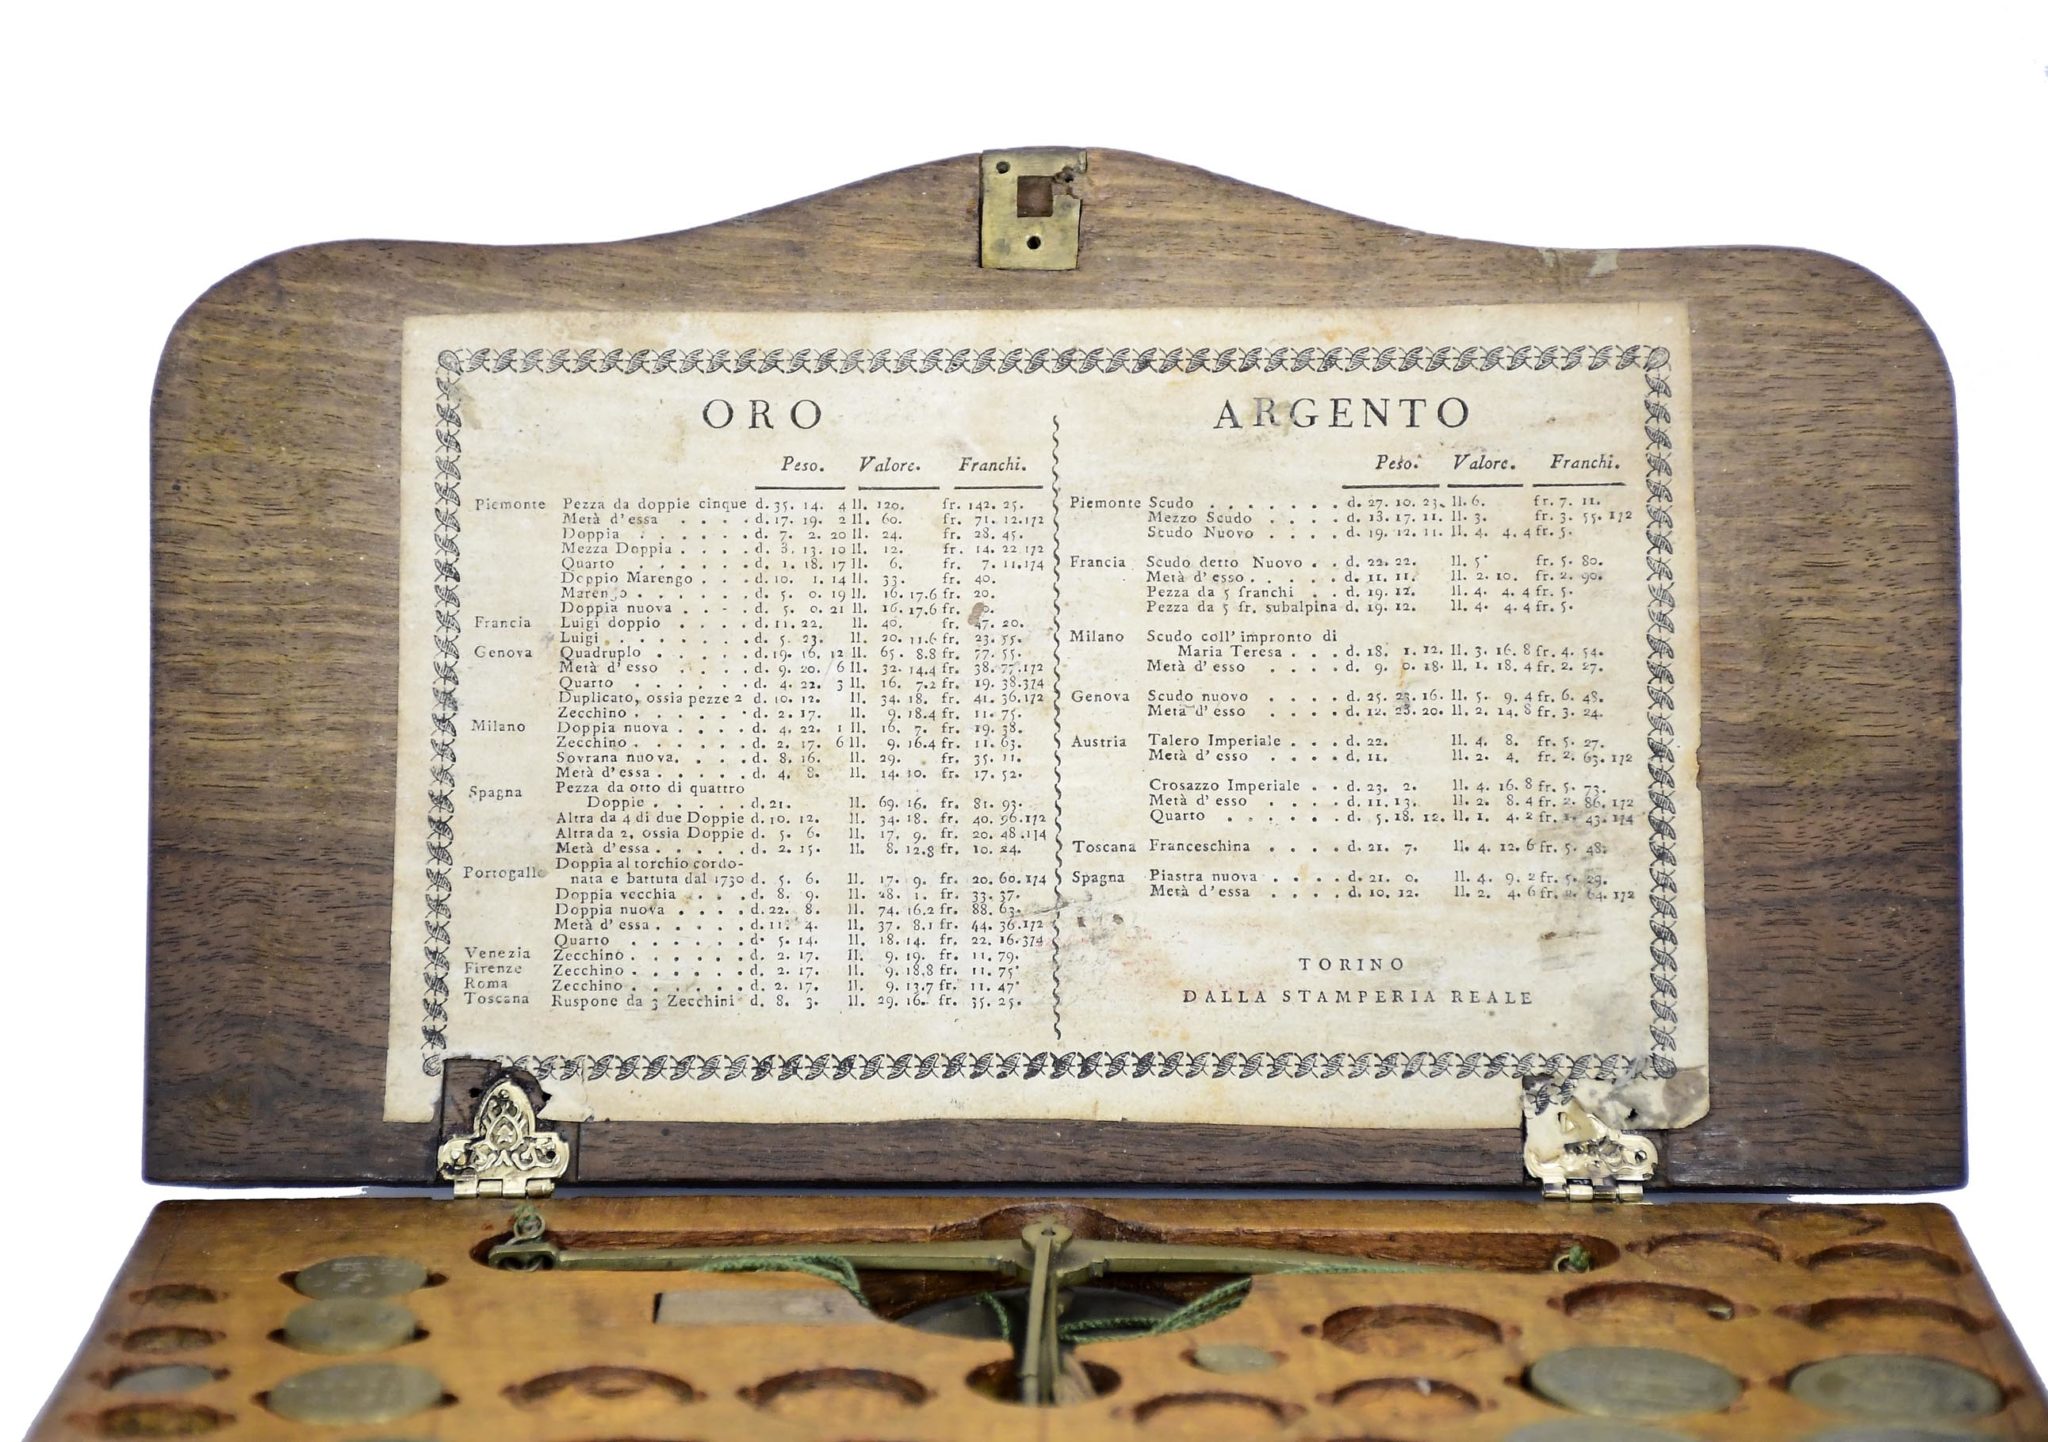 ORO
Peso. Valore. Franchi.
Piemonte Pezza da doppie cinque d. 35. 14. 4 ll. 120. fr. 142. 25.
Metà d'essa . . . . d. 17. 19. 2 ll. 60. fr. 71. 12.1/2
Doppia . . . . . . d. 7. 2. 20 ll. 24. fr. 28. 45.
Mezza Doppia . . . . d. 3. 13. 10 ll. 12. fr. 14. 22 1/2
Quarto . . . . . . d. 1. 18. 17 ll. 6. fr. 7. 11.1/4
Doppio Marengo . . . d. 10. 1. 14 ll. 33. fr. 40.
Marengo . . . . . . d. 5. 0. 19 ll. 16. 17.6 fr. 20.
Doppia nuova . . . d. 5. 0. 21 ll. 16. 17.6 fr.
Francia Luigi doppio . . . . d. 11. 22. ll. 40. fr. 47. 20.
Luigi . . . . . . . d. 5. 23. ll. 20. 11.6 fr. 23. 55.
Genova Quadruplo . . . . . d. 19. 16. 12 ll. 65. 8.8 fr. 77. 55.
Metà d'esso . . . . d. 9. 20. 6 ll. 32. 14.4 fr. 38. 77.1/2
Quarto . . . . . . d. 4. 22. 3 ll. 16. 7.2 fr. 19. 38.3/4
Duplicato, ossia pezze 2 d. 10. 12. ll. 34. 18. fr. 41. 36.1/2
Zecchino . . . . . . d. 2. 17. ll. 9. 18.4 fr. 11. 75.
Milano Doppia nuova . . . . d. 4. 22. 1 ll. 16. 7. fr. 19. 38.
Zecchino . . . . . . d. 2. 17. 6 ll. 9. 16.4 fr. 11. 63.
Sovrana nuova. . . . d. 8. 16. ll. 29. fr. 35. 11.
Metà d'essa . . . . . d. 4. 8. ll. 14. 10. fr. 17. 52.
Spagna Pezza da otto di quattro
Doppie . . . . . d. 21. ll. 69. 16. fr. 81. 93.
Altra da 4 di due Doppie d. 10. 12. ll. 34. 18. fr. 40. 96.1/2
Altra da 2, ossia Doppie d. 5. 6. ll. 17. 9. fr. 20. 48.1/4
Metà d'essa . . . . . d. 2. 15. ll. 8. 12.8 fr. 10. 24.
Portogallo Doppia al torchio cordo-
nata e battuta dal 1730 d. 5. 6. ll. 17. 9. fr. 20. 60.1/4
Doppia vecchia . . . d. 8. 9. ll. 28. 1. fr. 33. 37.
Doppia nuova . . . . d. 22. 8. ll. 74. 16.2 fr. 88. 63.
Metà d'essa . . . . . d. 11. 4. ll. 37. 8.1 fr. 44. 36.1/2
Quarto . . . . . . d. 5. 14. ll. 18. 14. fr. 22. 16.3/4
Venezia Zecchino . . . . . . d. 2. 17. ll. 9. 19. fr. 11. 79.
Firenze Zecchino . . . . . . d. 2. 17. ll. 9. 18.8 fr. 11. 75.
Roma Zecchino . . . . . . d. 2. 17. ll. 9. 13.7 fr. 11. 47.
Toscana Ruspone da 3 Zecchini d. 8. 3. ll. 29. 16. fr. 35. 25.
ARGENTO
Peso. Valore. Franchi.
Piemonte Scudo . . . . . . . d. 27. 10. 23. ll. 6. fr. 7. 11.
Mezzo Scudo . . . . d. 13. 17. 11. ll. 3. fr. 3. 55. 1/2
Scudo Nuovo . . . . d. 19. 12. 11. ll. 4. 4. 4 fr. 5.
Francia Scudo detto Nuovo . . d. 22. 22. ll. 5. fr. 5. 80.
Metà d'esso . . . . . d. 11. 11. ll. 2. 10. fr. 2. 90.
Pezza da 5 franchi . . d. 19. 12. ll. 4. 4. 4 fr. 5.
Pezza da 5 fr. subalpina d. 19. 12. ll. 4. 4. 4 fr. 5.
Milano Scudo coll'impronto di
Maria Teresa . . . d. 18. 1. 12. ll. 3. 16. 8 fr. 4. 54.
Metà d'esso . . . . d. 9. 0. 18. ll. 1. 18. 4 fr. 2. 27.
Genova Scudo nuovo . . . . d. 25. 23. 16. ll. 5. 9. 4 fr. 6. 48.
Metà d'esso . . . . d. 12. 23. 20. ll. 2. 14. 8 fr. 3. 24.
Austria Talero Imperiale . . . d. 22. ll. 4. 8. fr. 5. 27.
Metà d'esso . . . . d. 11. ll. 2. 4. fr. 2. 63. 1/2
Crosazzo Imperiale . . d. 23. 2. ll. 4. 16. 8 fr. 5. 73.
Metà d'esso . . . . d. 11. 13. ll. 2. 8. 4 fr. 2. 86. 1/2
Quarto . . . . . . d. 5. 18. 12. ll. 1. 4. 2 fr. 1. 43. 1/4
Toscana Franceschina . . . . d. 21. 7. ll. 4. 12. 6 fr. 5. 48.
Spagna Piastra nuova . . . . d. 21. 0. ll. 4. 9. 2 fr. 5. 29.
Metà d'essa . . . . d. 10. 12. ll. 2. 4. 6 fr. 2. 64. 1/2
TORINO
DALLA STAMPERIA REALE